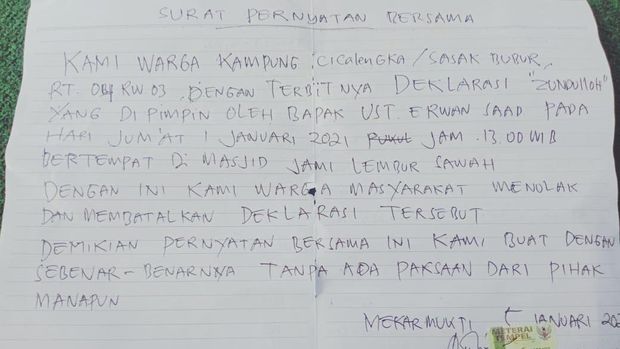 SURAT PERNYATAN BERSAMA
KAMI WARGA KAMPUNG CICALENGKA/SASAK BUBUR,
RT. 04 RW 03, DENGAN TERBITNYA DEKLARASI "ZUNDULLOH"
YANG DI PIMPIN OLEH BAPAK UST. ERWAN SAAD PADA
HARI JUM'AT 1 JANUARI 2021 PUKUL JAM. 13.00 WIB
BERTEMPAT DI MASJID JAMI LEMBUR SAWAH
DENGAN INI KAMI WARGA MASYARAKAT MENOLAK
DAN MEMBATALKAN DEKLARASI TERSEBUT
DEMIKIAN PERNYATAN BERSAMA INI KAMI BUAT DENGAN
SEBENAR-BENARNYA TANPA ADA PAKSAAN DARI PIHAK
MANAPUN
MEKARMUKTI 5 JANUARI 202
METERAI
TEMPEL